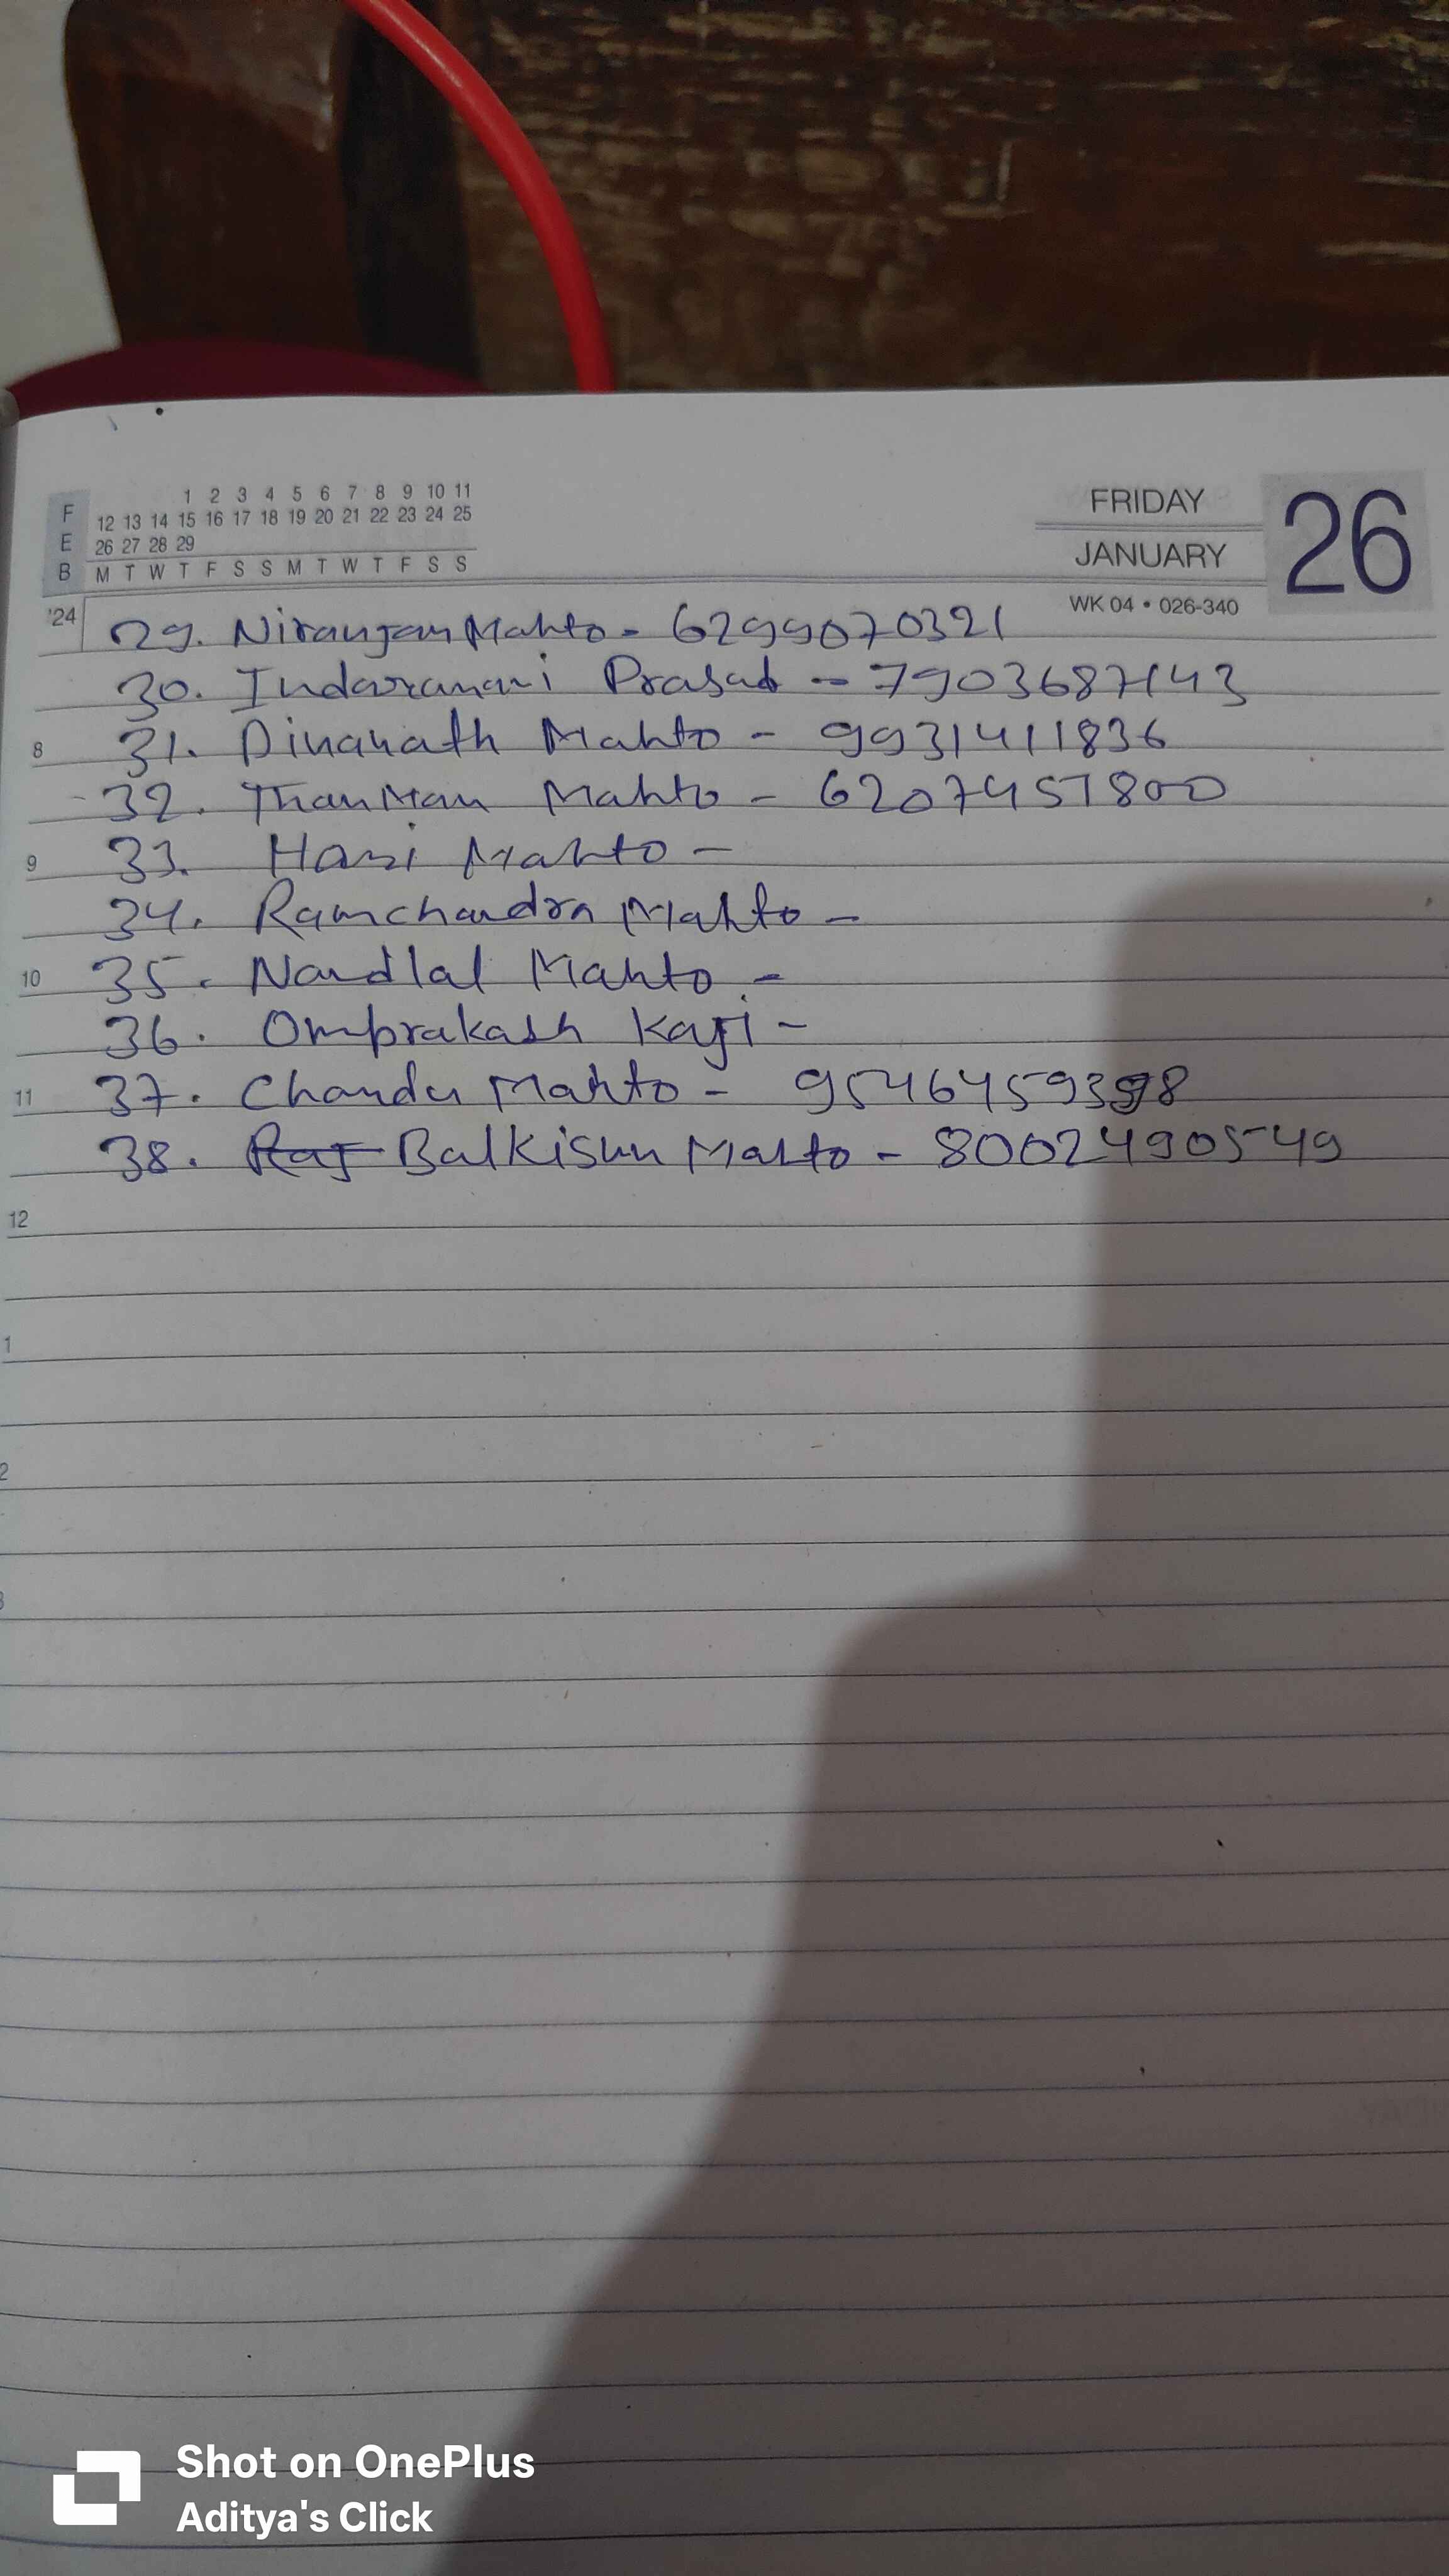 F E B
1 2 3 4 5 6 7 8 9 10 11
12 13 14 15 16 17 18 19 20 21 22 23 24 25
26 27 28 29
M T W T F S S M T W T F S S
FRIDAY
JANUARY
26
WK 04 • 026-340
'24
29. Niranjan Mahto - 6299070321
30. Indaramani Prasad - 7903687143
8 31. Dinanath Mahto - 9931411836
32. ThanMan Mahto - 6207451800
9 33. Hari Mahto -
34. Ramchandra Mahto -
10 35. Nandlal Mahto -
36. Omprakash Kaji -
11 37. Chandu Mahto -
38. Raj Balkisun Mahto - 8002490549
12
1
2
3
Shot on OnePlus
Aditya's Click